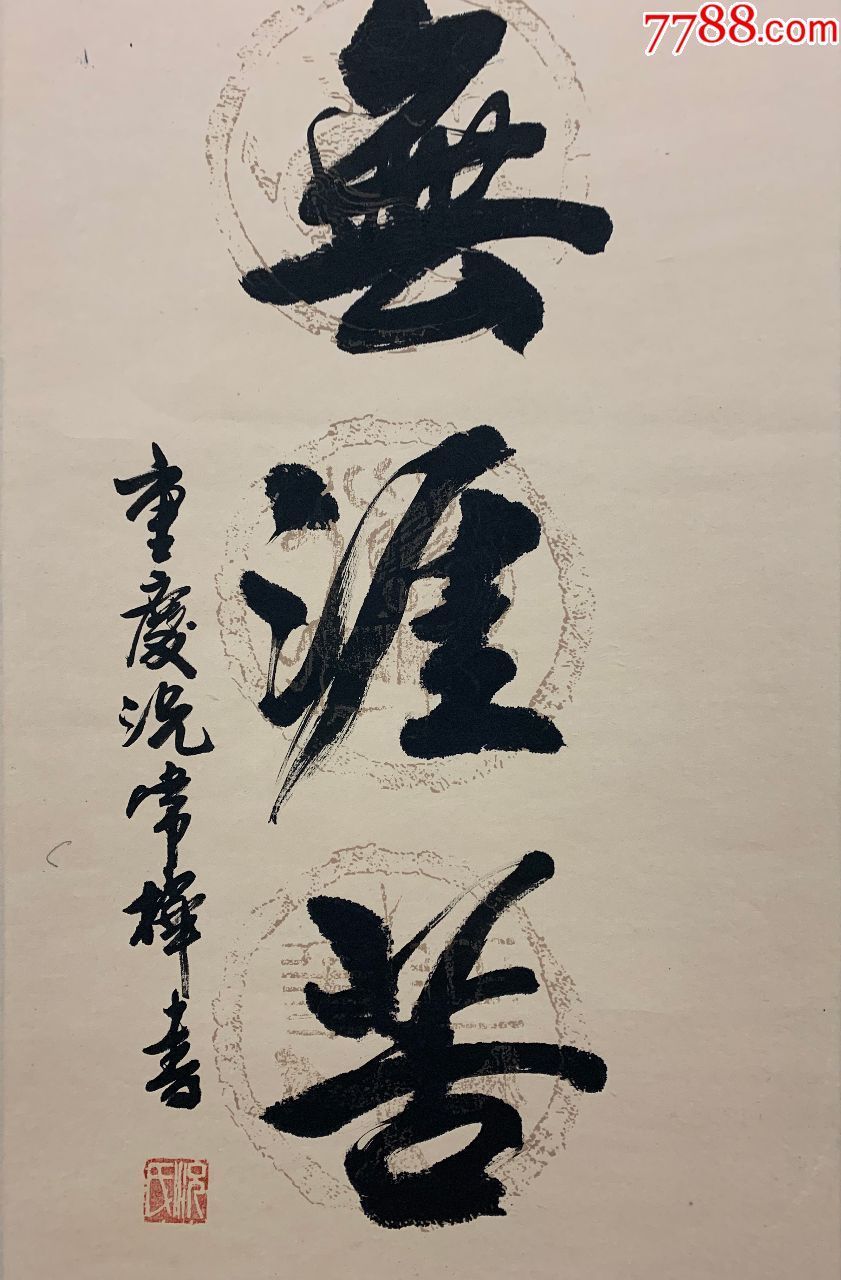 7788.com
無涯苦
重慶況常樺書
況氏